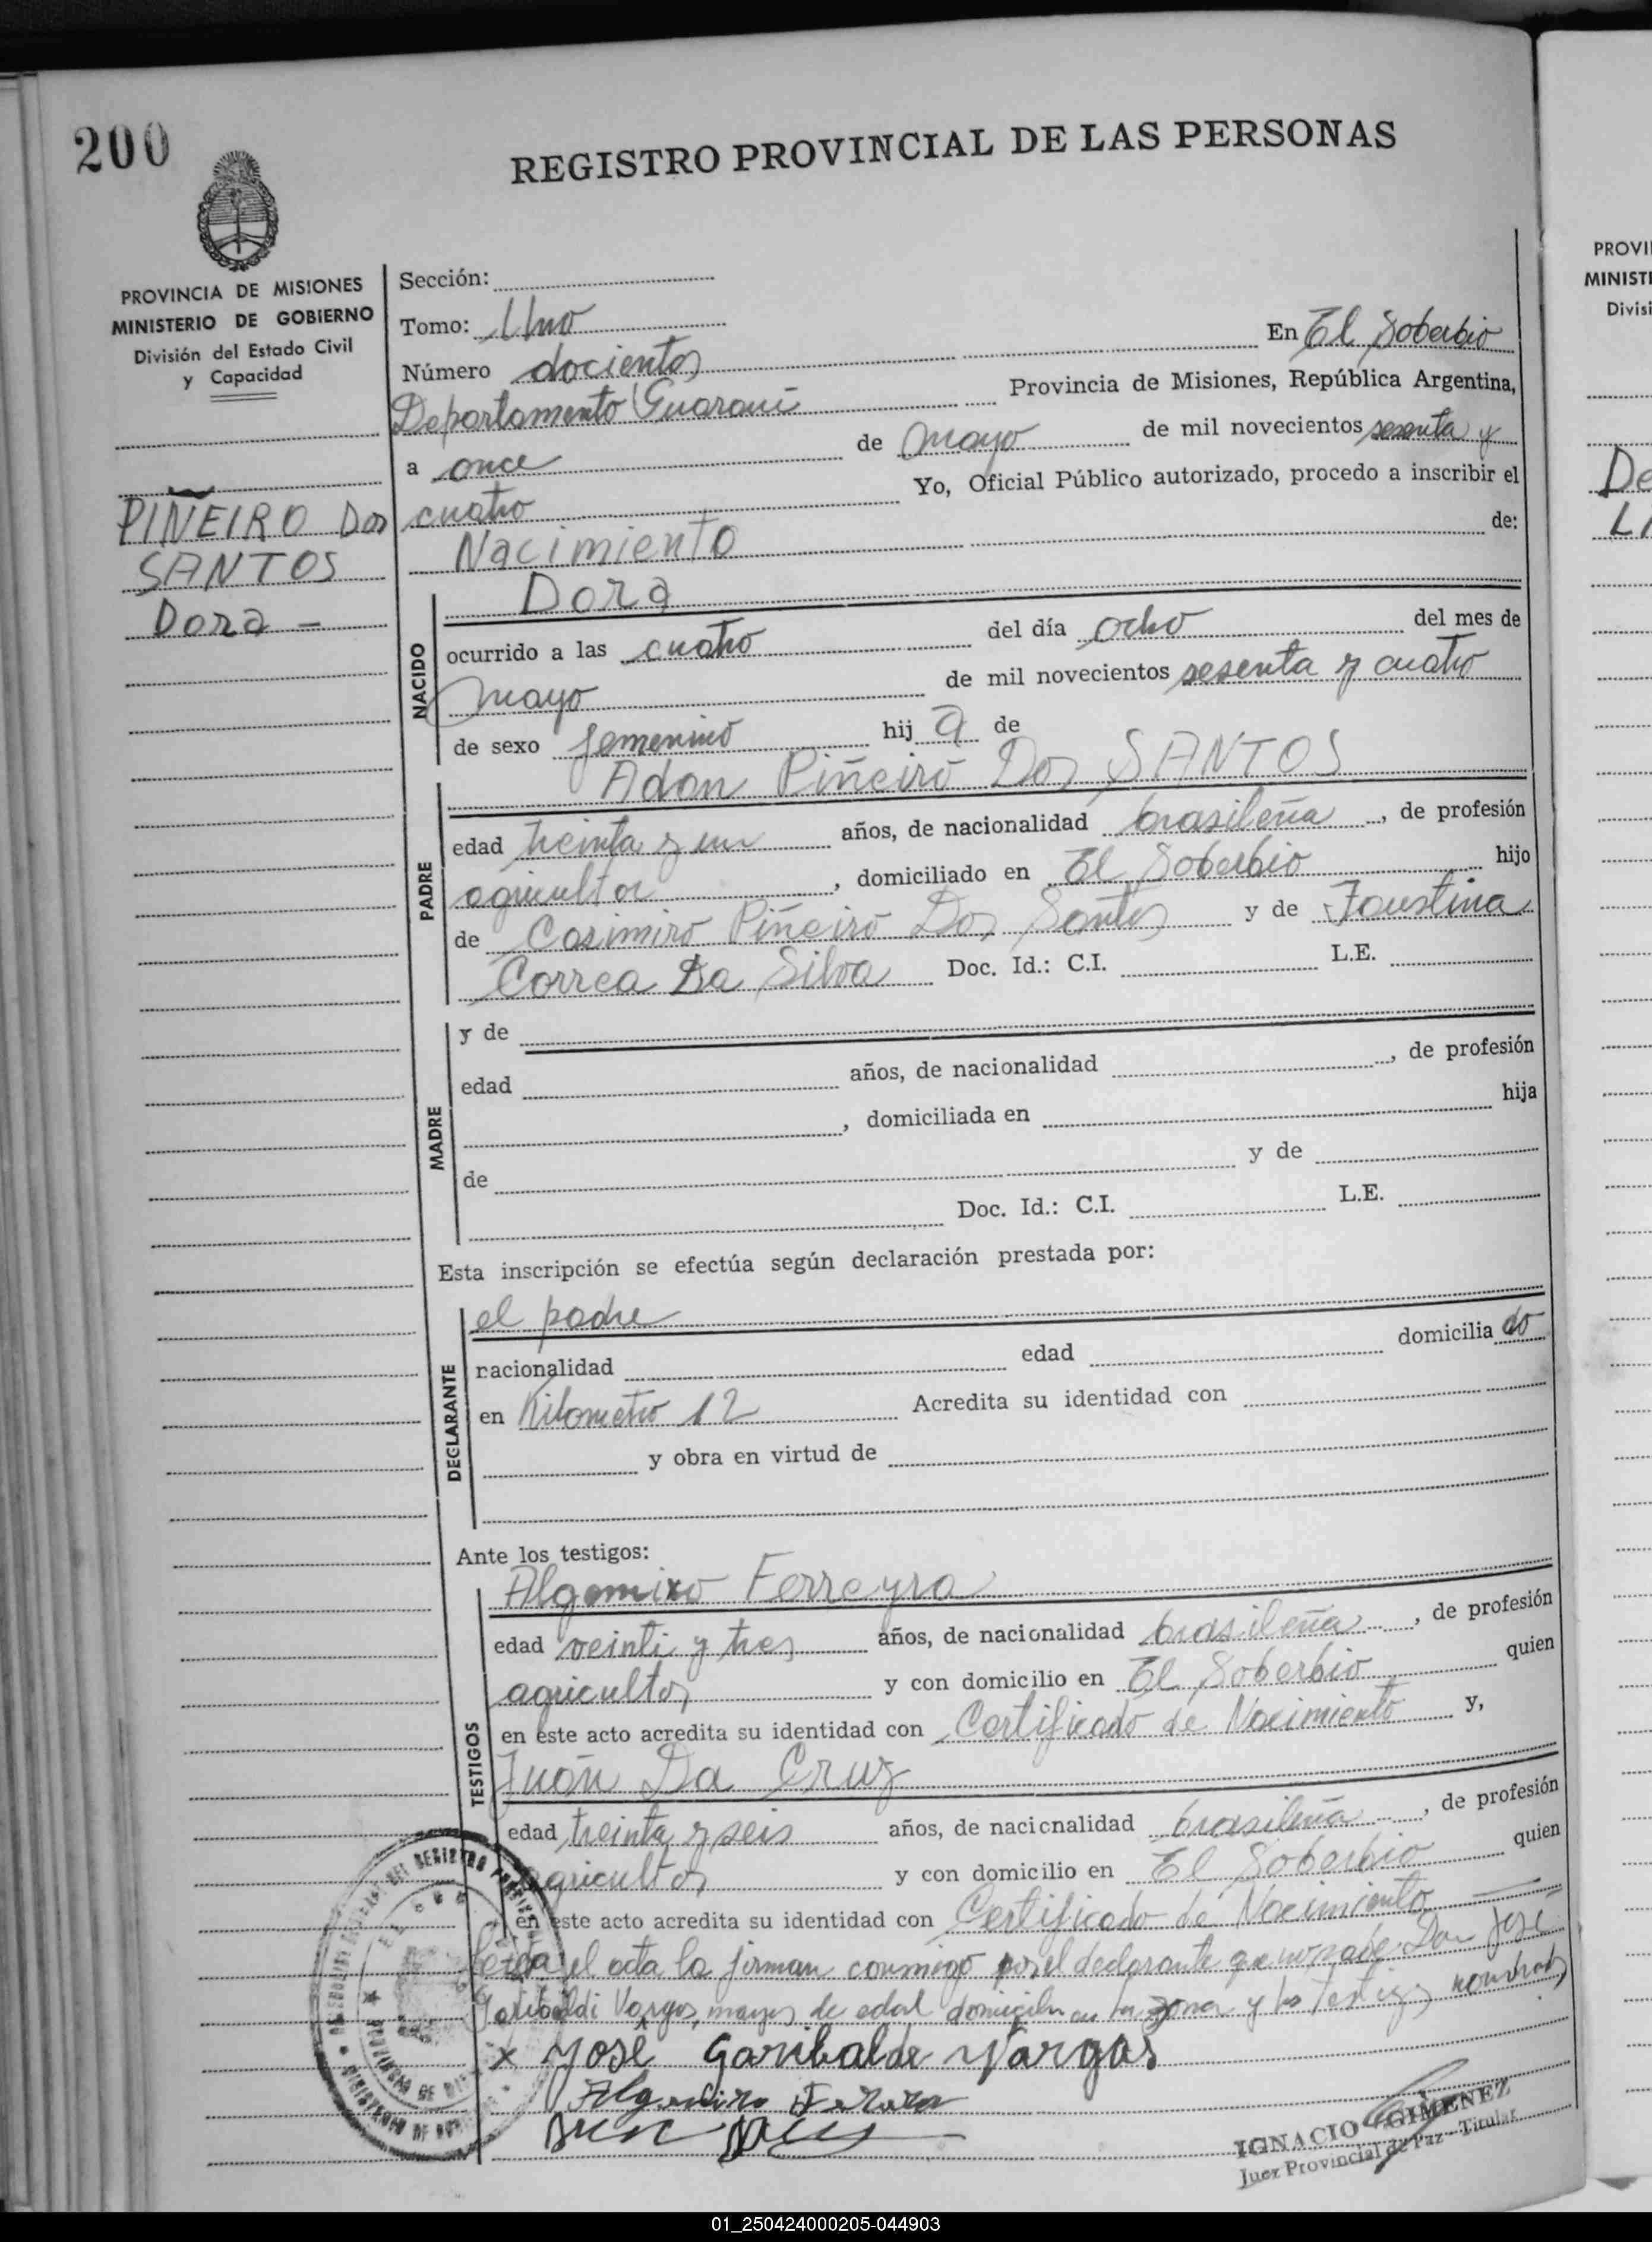 200
REGISTRO PROVINCIAL DE LAS PERSONAS
PROVINCIA DE MISIONES
MINISTERIO DE GOBIERNO
División del Estado Civil
y Capacidad
PIÑEIRO Dos
SANTOS
Dora -
Sección:
Tomo: Uno
Número docientos En El Soberbio
Departamento Guaraní Provincia de Misiones, República Argentina,
a once de mayo de mil novecientos sesenta y
cuatro Yo, Oficial Público autorizado, procedo a inscribir el
Nacimiento de:
Dora
NACIDO
ocurrido a las cuatro del día ocho del mes de
mayo de mil novecientos sesenta y cuatro
de sexo femenino hij a de
Adan Piñeiro Dos SANTOS
PADRE
edad treinta y un años, de nacionalidad brasileña, de profesión
agricultor, domiciliado en El Soberbio hijo
de Casimiro Piñeiro Dos Santos y de Faustina
Correa Da Silva Doc. Id.: C.I. L.E.
MADRE
y de
edad años, de nacionalidad , de profesión
, domiciliada en hija
de y de
Doc. Id.: C.I. L.E.
Esta inscripción se efectúa según declaración prestada por:
el padre
DECLARANTE
nacionalidad edad domicilia do
en Kilometro 12 Acredita su identidad con
y obra en virtud de
Ante los testigos:
Algemiro Ferreyra
TESTIGOS
edad veinti y tres años, de nacionalidad brasileña, de profesión
agricultor y con domicilio en El Soberbio quien
en este acto acredita su identidad con Certificado de Nacimiento y,
Juan Da Cruz
edad treinta y seis años, de nacionalidad brasileña, de profesión
agricultor y con domicilio en El Soberbio quien
en este acto acredita su identidad con Certificado de Nacimiento
Leida el acta la firman conmigo por el declarante que no sabe Don José
Garibaldi Vargas, mayor de edad y los testigos nombrados
x José Garibalde Vargas
Algemiro
IGNACIO GIMENEZ
Juez Provincial de Paz - Titular
PROVI
MINISTI
Divisi
De
01_250424000205-044903